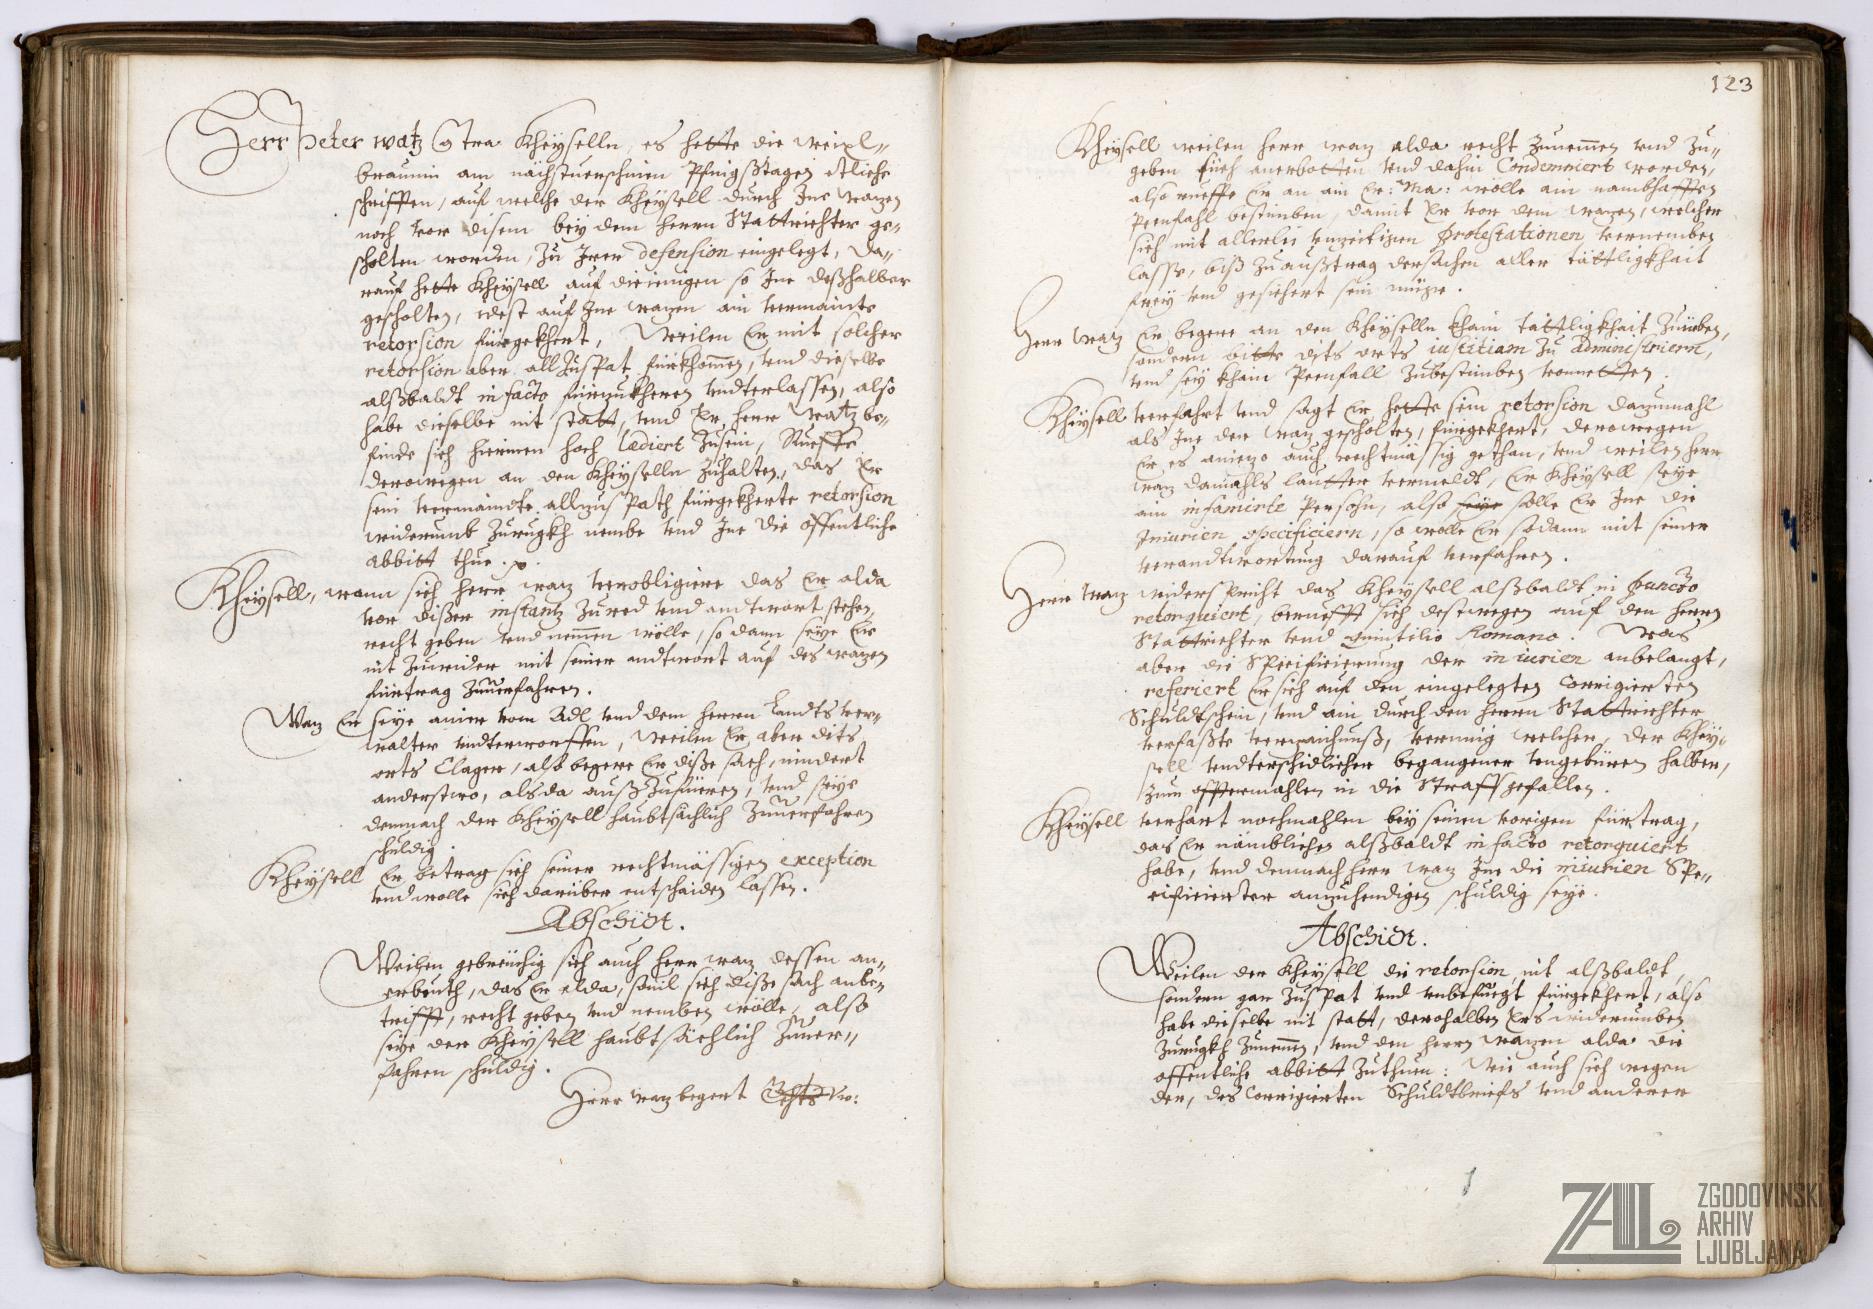 Herr Peter Watz Contra Kheyselln, es hette die weixl-
braunin am nächstuerschinen Pfingstagen etliche
schrifften, auf welche der Kheysell durch Ine Wazen
noch vor disem bey dem Herrn Stattrichter ge-
scholten worden, zu Irer defension eingelegt, da-
rauf hette Kheysell auf dieienigen so Ine deßhalber
gescholten, idest auf Ine Wazen ain vermainte
retorsion fürgekhert, Weilen Er mit solcher
retorsion aber all zuspat fürkhomen, vnd dieselbe
alßbaldt in facto fürzukheren vndterlassen, also
habe dieselbe nit statt, vnd Er Herr Watz be-
finde sich hierinen hoch laediert zusein, Rueffe
derowegen an den Kheyselln zuhalten, das Er
sein vermaindte allzuspath fürgekherte retorsion
widerumb zurugkh nembe vnd Ine die offentliche
abbitt thue.
Kheysell, wann sich Herr Waz verobligiere das Er alda
vor dißer instantz zu red vnd andtwort stehen,
recht geben vnd nemmen wölle, so dann seye Er
nit zuwider mit seiner andtwort auf des Wazen
fürtrag zuuerfahren.
Waz Er seye ainer vom Adl vnd dem Herrn Landtsver-
walter vndterworffen, Weilen Er aber dits
orts Clager, also begere Er diße sach, nindert
anderstwo, als da auß zufüeren, vnd seye
demnach der Kheysell haubtsächlich zuuerfahren
schuldig.
Kheysell Er betrag sich seiner rechtmässigen exception
vnd wolle sich darüber entschaiden lassen.
Abschidt.
Weilen gebreüchig sich auch Herr Waz dessen an-
erbeuth, das Er alda, souil sich diße sach anbe-
trifft, recht geben vnd nemben wölle, also
seye der Kheysell haubtsächlich zuuer-
fahren schuldig.
Herr Waz begert
123
Kheysell weilen Herr Waz alda recht zunemmen vnd zu-
geben sich anerbotten vnd dahin Condemniert worden,
also rueffe Er an ain Er: Ma: wölle ain nambhafften
Peenfahl bestimben, damit Er vor dem Wazen, welcher
sich mit allerlei vnzeitigen protestationen vernemben
lasse, biß zu außtrag der sachen aller tättligkhait
frey vnd gesichert sein müge.
Herr Waz Er begere an den Kheyselln khain tättligkhait zuüeben,
sondern bitte dits orts iustitiam zu administriern,
vnd sey khain Peenfall zubestimben vonnetten.
Kheysell verfahrt vnd sagt Er hette sein retorsion dazumahl
als Ine der Waz gescholten, fürgekhert, derowegen
Er es aniezo auch rechtmässig gethan, vnd weilen Herr
Waz damahls lautter vermeldt, Er Kheysell seye
ain infamirte Persohn, also seye solle Er Ine die
Iniurien specificiern, so wolle Er sodann mit seiner
verandtwortung darauf verfahren.
Herr Waz widerspricht das Kheysell alßbaldt in puncto
retorquiert, beruefft sich destwegen auf den Herrn
Stattrichter vnd Quintilio Romano. Was
aber die Specificierung der iniurien anbelangt,
referiert Er sich auf den eingelegten Corrigierten
Schuldtschein, vnd ain durch den Herrn Stattrichter
verfaßte verzaichnuß, vermüg welcher, der Khey-
sell vndterschidlicher begangener vngebüren halber,
zum offtermahlen in die Straff gefallen.
Kheysell verhart nochmahlen bey seinen vorigen fürtrag,
das Er nämblichen alßbaldt in facto retorquiert
habe, vnd demnach Herr Waz Ine die iniurien Spe-
cificierter anzuhendigen schuldig seye.
Abschidt.
Weilen der Kheysell die retorsion nit alßbaldt,
sondern gar zuspat vnd vnbefuegt fürgekhert, also
habe dieselbe nit statt, derohalben Ers widerumben
zurugkh zunemen, vnd den Herrn Wazen alda die
offentliche abbitt zuthuen: Wie auch sich wegen
der, des Corrigierten Schuldtbriefs vnd anderer
ZGODOVINSKI
ARHIV
LJUBLJANA